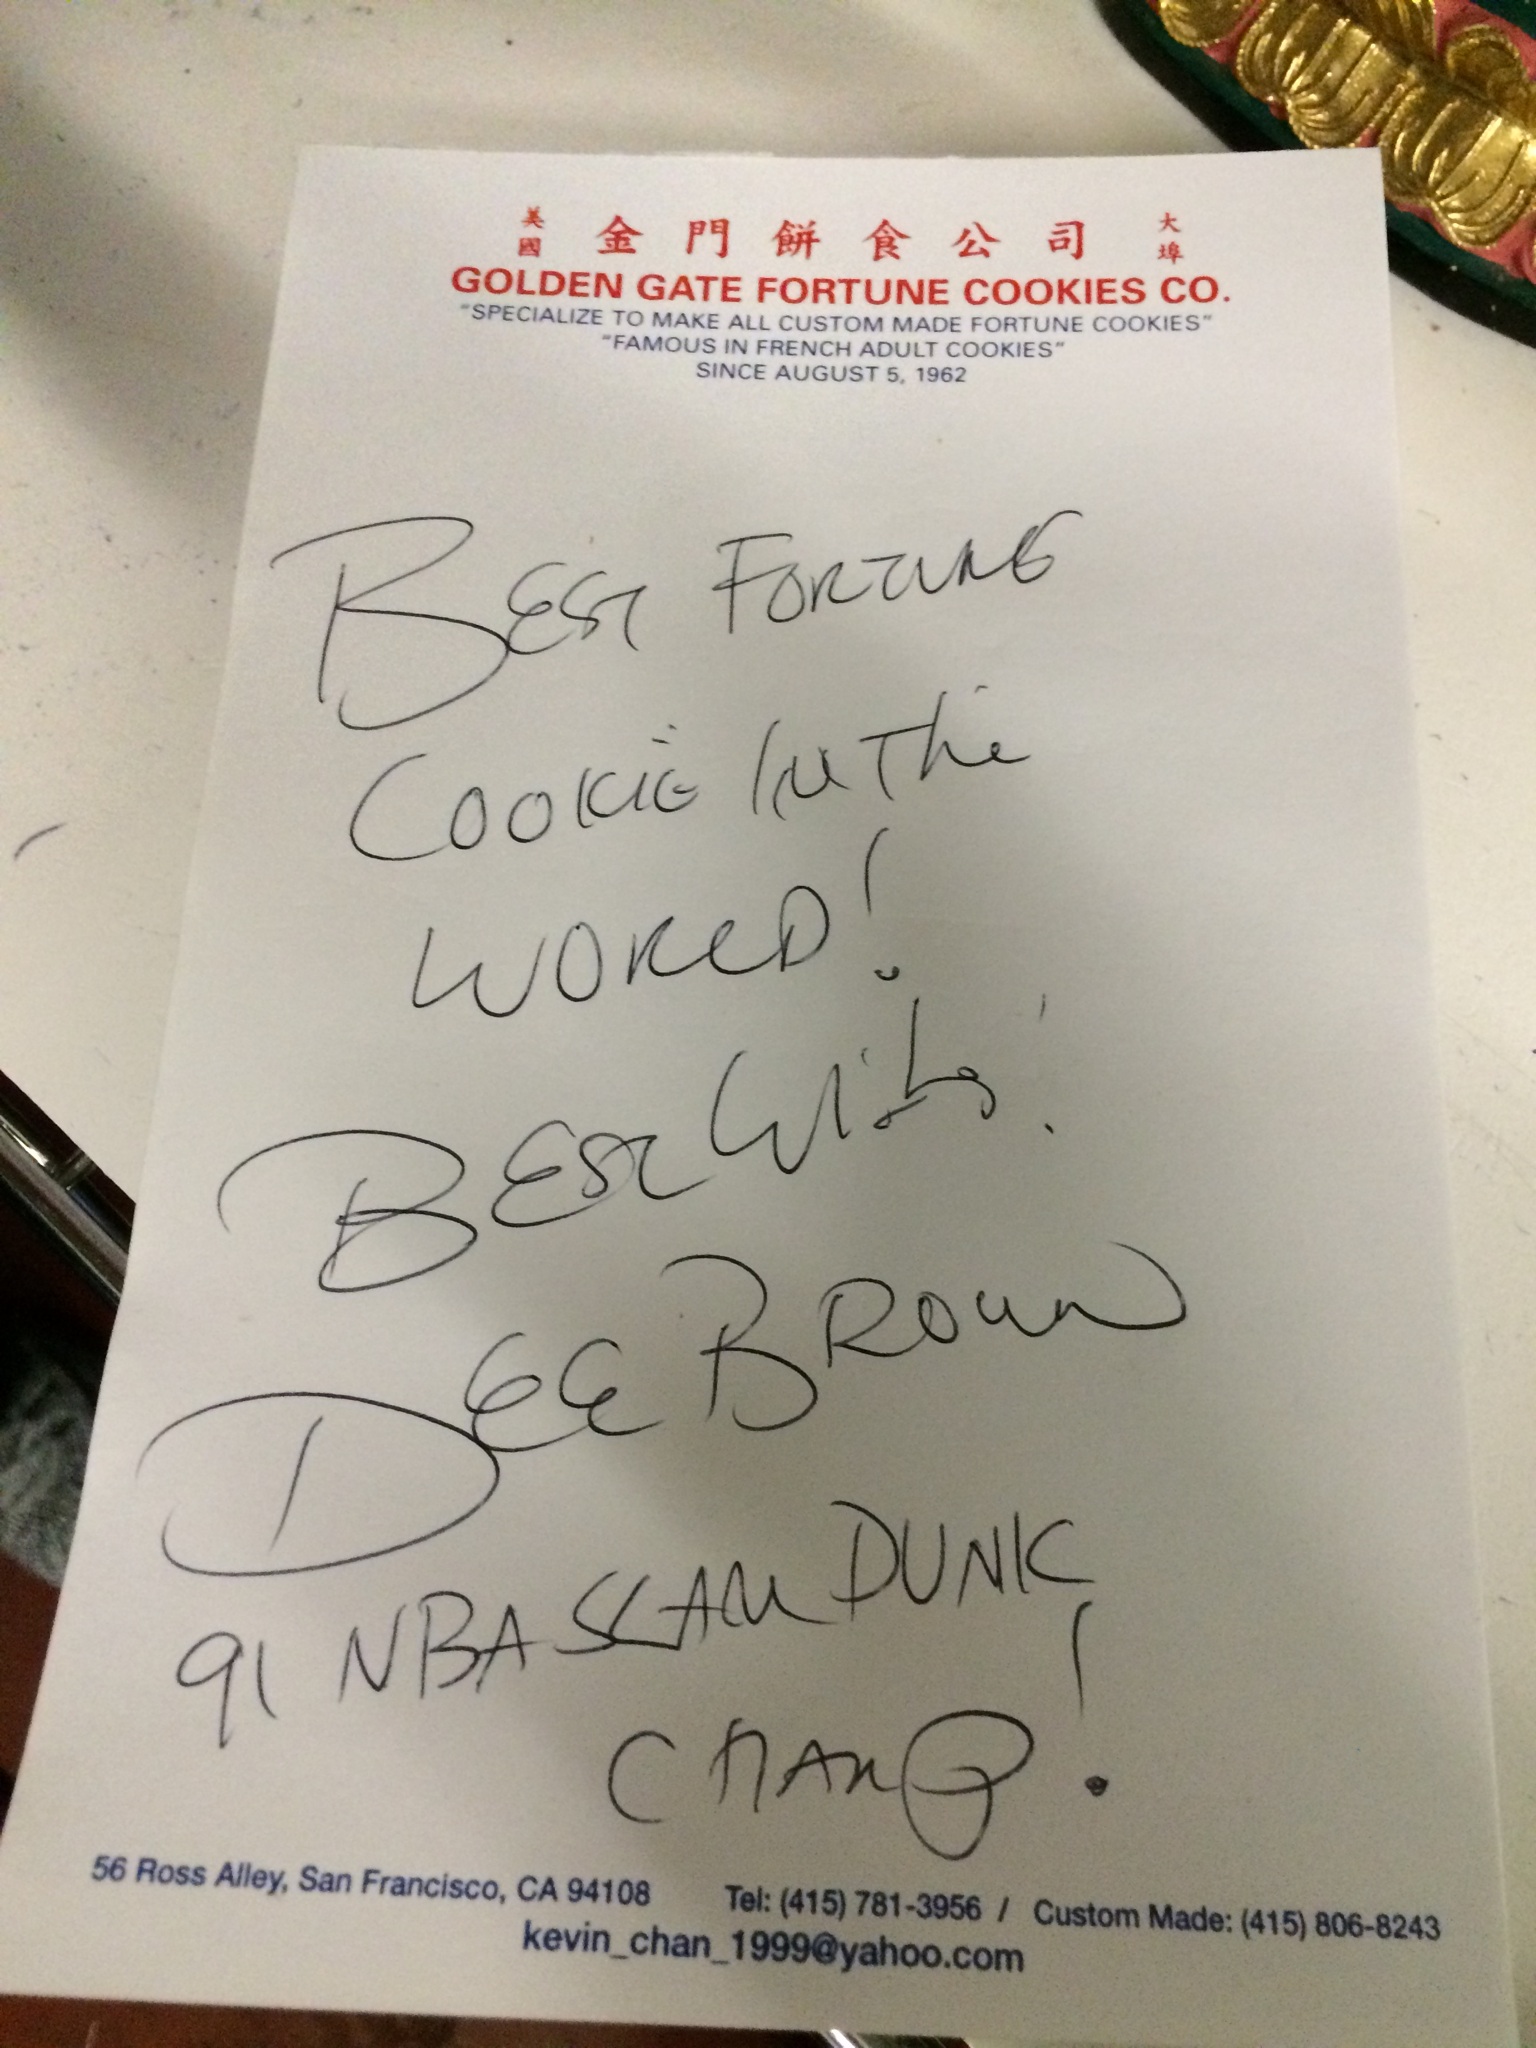 美國 金門餅食公司 大埠
GOLDEN GATE FORTUNE COOKIES CO.
"SPECIALIZE TO MAKE ALL CUSTOM MADE FORTUNE COOKIES"
"FAMOUS IN FRENCH ADULT COOKIES"
SINCE AUGUST 5, 1962
Best Fortune
Cookie in the
World!
Best
Dee Brown
91 NBA SLAM DUNK
CHAMP!
56 Ross Alley, San Francisco, CA 94108 Tel: (415) 781-3956 / Custom Made: (415) 806-8243
kevin_chan_1999@yahoo.com